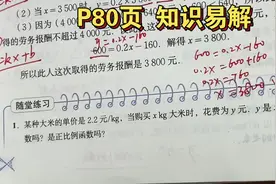 P80页 知识易解
(2) 当 x = 3 500 时
(3) 因为
得的劳务报酬不超过 4 000
600 = 0.2x − 160. 解得 x = 3 800.
所以此人这次取得的劳务报酬是 3 800 元.
=kx+b
600=0.2x-160
0.2x=600+160
0.2x=760
x=3800
随堂练习
1. 某种大米的单价是 2.2 元/kg, 当购买 x kg 大米时, 花费为 y 元, y 是
数吗? 是正比例函数吗?